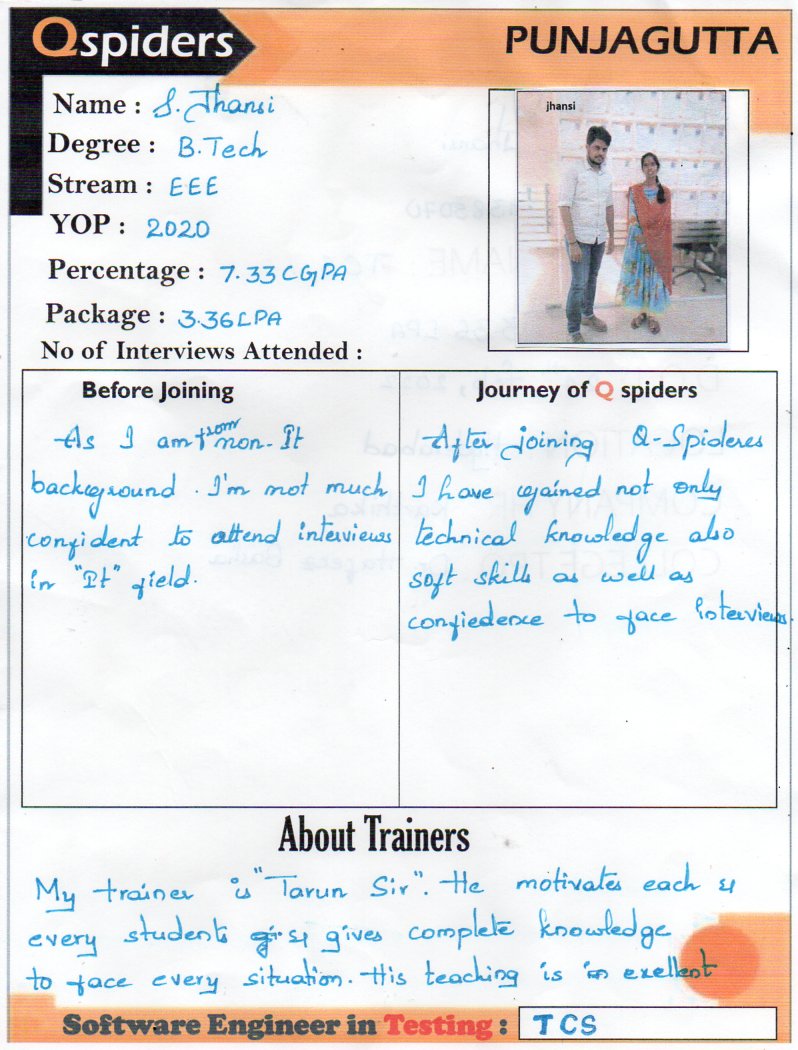 Qspiders
PUNJAGUTTA
Name : S. Jhansi
Degree : B.Tech
Stream : EEE
YOP : 2020
Percentage : 7.33 CGPA
Package : 3.36 LPA
No of Interviews Attended :
jhansi
Before Joining
As I am from non-It
background. I'm not much
confident to attend interviews
in "It" field.
Journey of Q spiders
After joining Q-Spideres
I have gained not only
technical knowledge also
soft skills as well as
confiedence to face interviews.
About Trainers
My trainer is "Tarun Sir". He motivates each &
every students & gives complete knowledge
to face every situation. His teaching is in exellent
Software Engineer in Testing : TCS